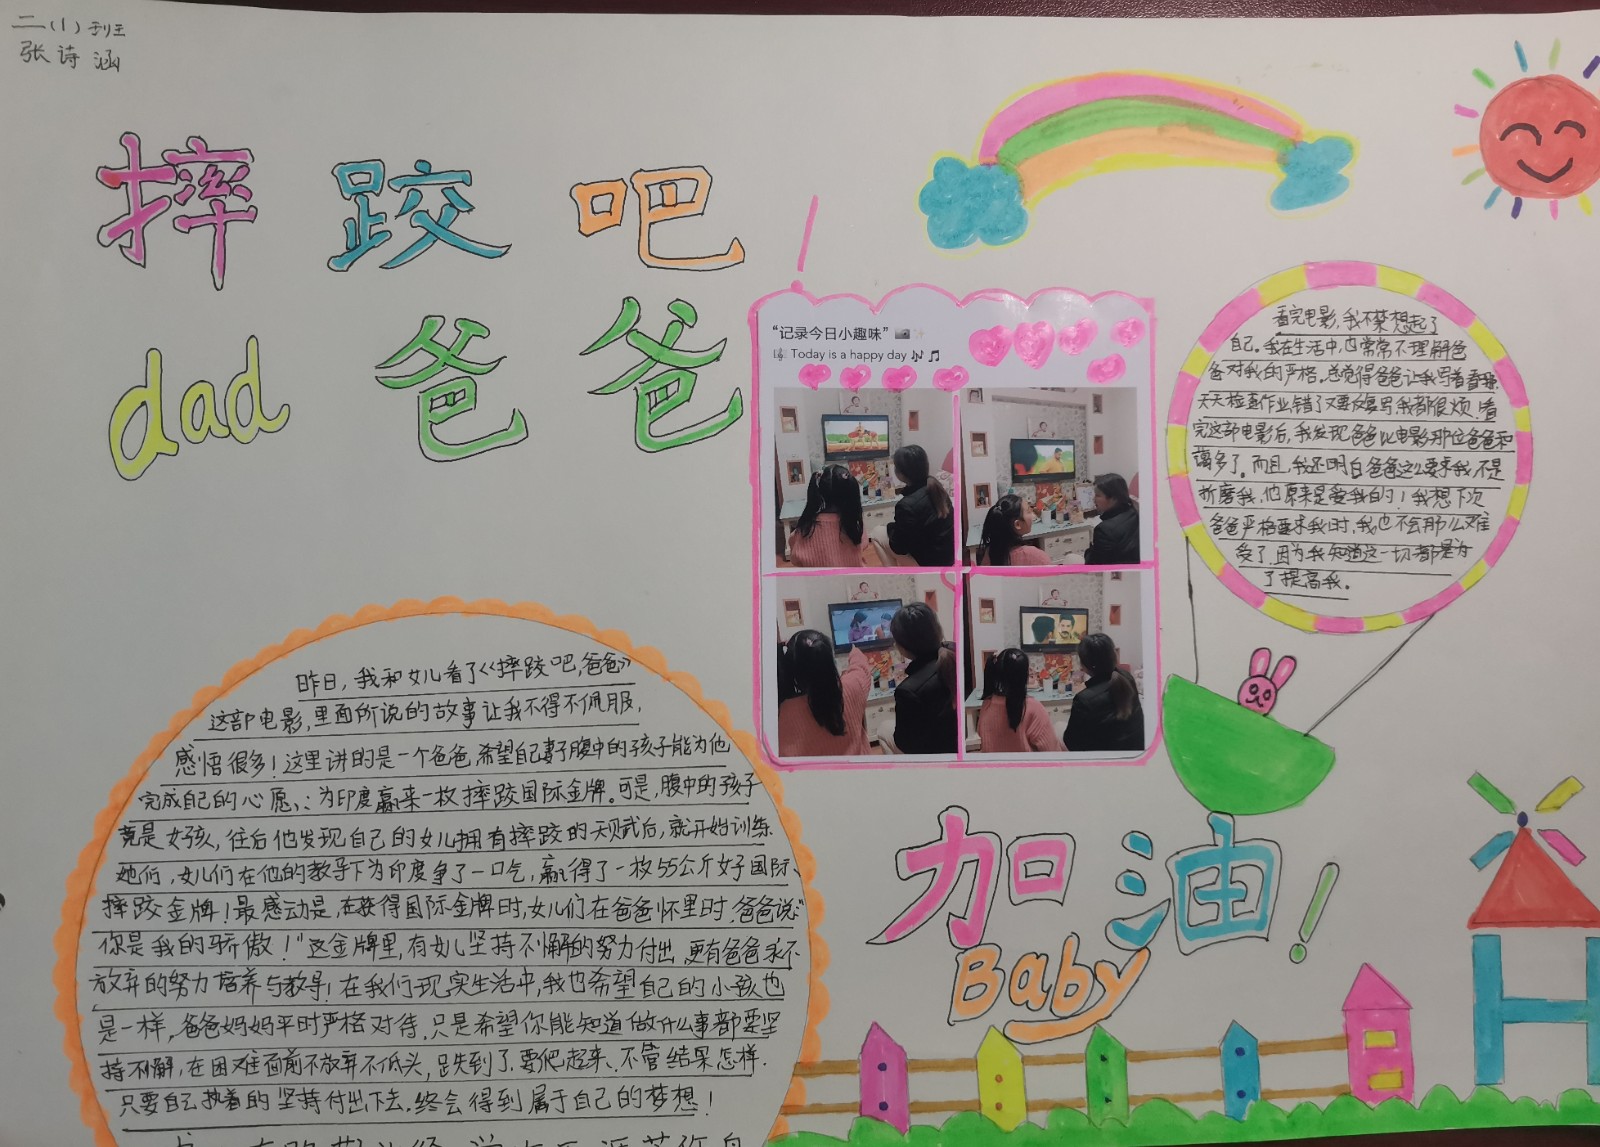 二(1)班
张诗涵
摔跤吧
dad 爸爸
“记录今日小趣味”
Today is a happy day
看完电影,我不禁想起了
自己。我在生活中,也常常不理解爸
爸对我的严格。总觉得爸爸让我写着
天天检查作业错了又要反复写,我都很烦。看
完这部电影后,我发现爸爸比电影那位爸爸和
蔼多了。而且,我还明白爸爸这么要求我不是
折磨我,他原来是爱我的!我想下次
爸爸严格要求我时,我也不会那么难
受了,因为我知道这一切都是为
了提高我。
昨日,我和女儿看了《摔跤吧,爸爸》
这部电影,里面所说的故事让我不得不佩服,
感悟很多!这里讲的是一个爸爸,希望自己妻子腹中的孩子能为他
完成自己的心愿,:为印度赢来一枚摔跤国际金牌。可是,腹中的孩子
竟是女孩,往后他发现自己的女儿拥有摔跤的天赋后,就开始训练
她们,女儿们在他的教导下为印度争了一口气,赢得了一枚55公斤女子国际
摔跤金牌!最感动是,在获得国际金牌时,女儿们在爸爸怀里时,爸爸说:“
你是我的骄傲!”这金牌里,有女儿坚持不懈的努力付出,更有爸爸永不
放弃的努力培养与教导!在我们现实生活中,我也希望自己的小孩也
是一样,爸爸妈妈平时严格对待,只是希望你能知道做什么事都要坚
持不懈,在困难面前不放弃不低头,跌到了,要爬起来、不管结果怎样.
只要自己执着的坚持付出下去,终会得到属于自己的梦想!
加油!
Baby